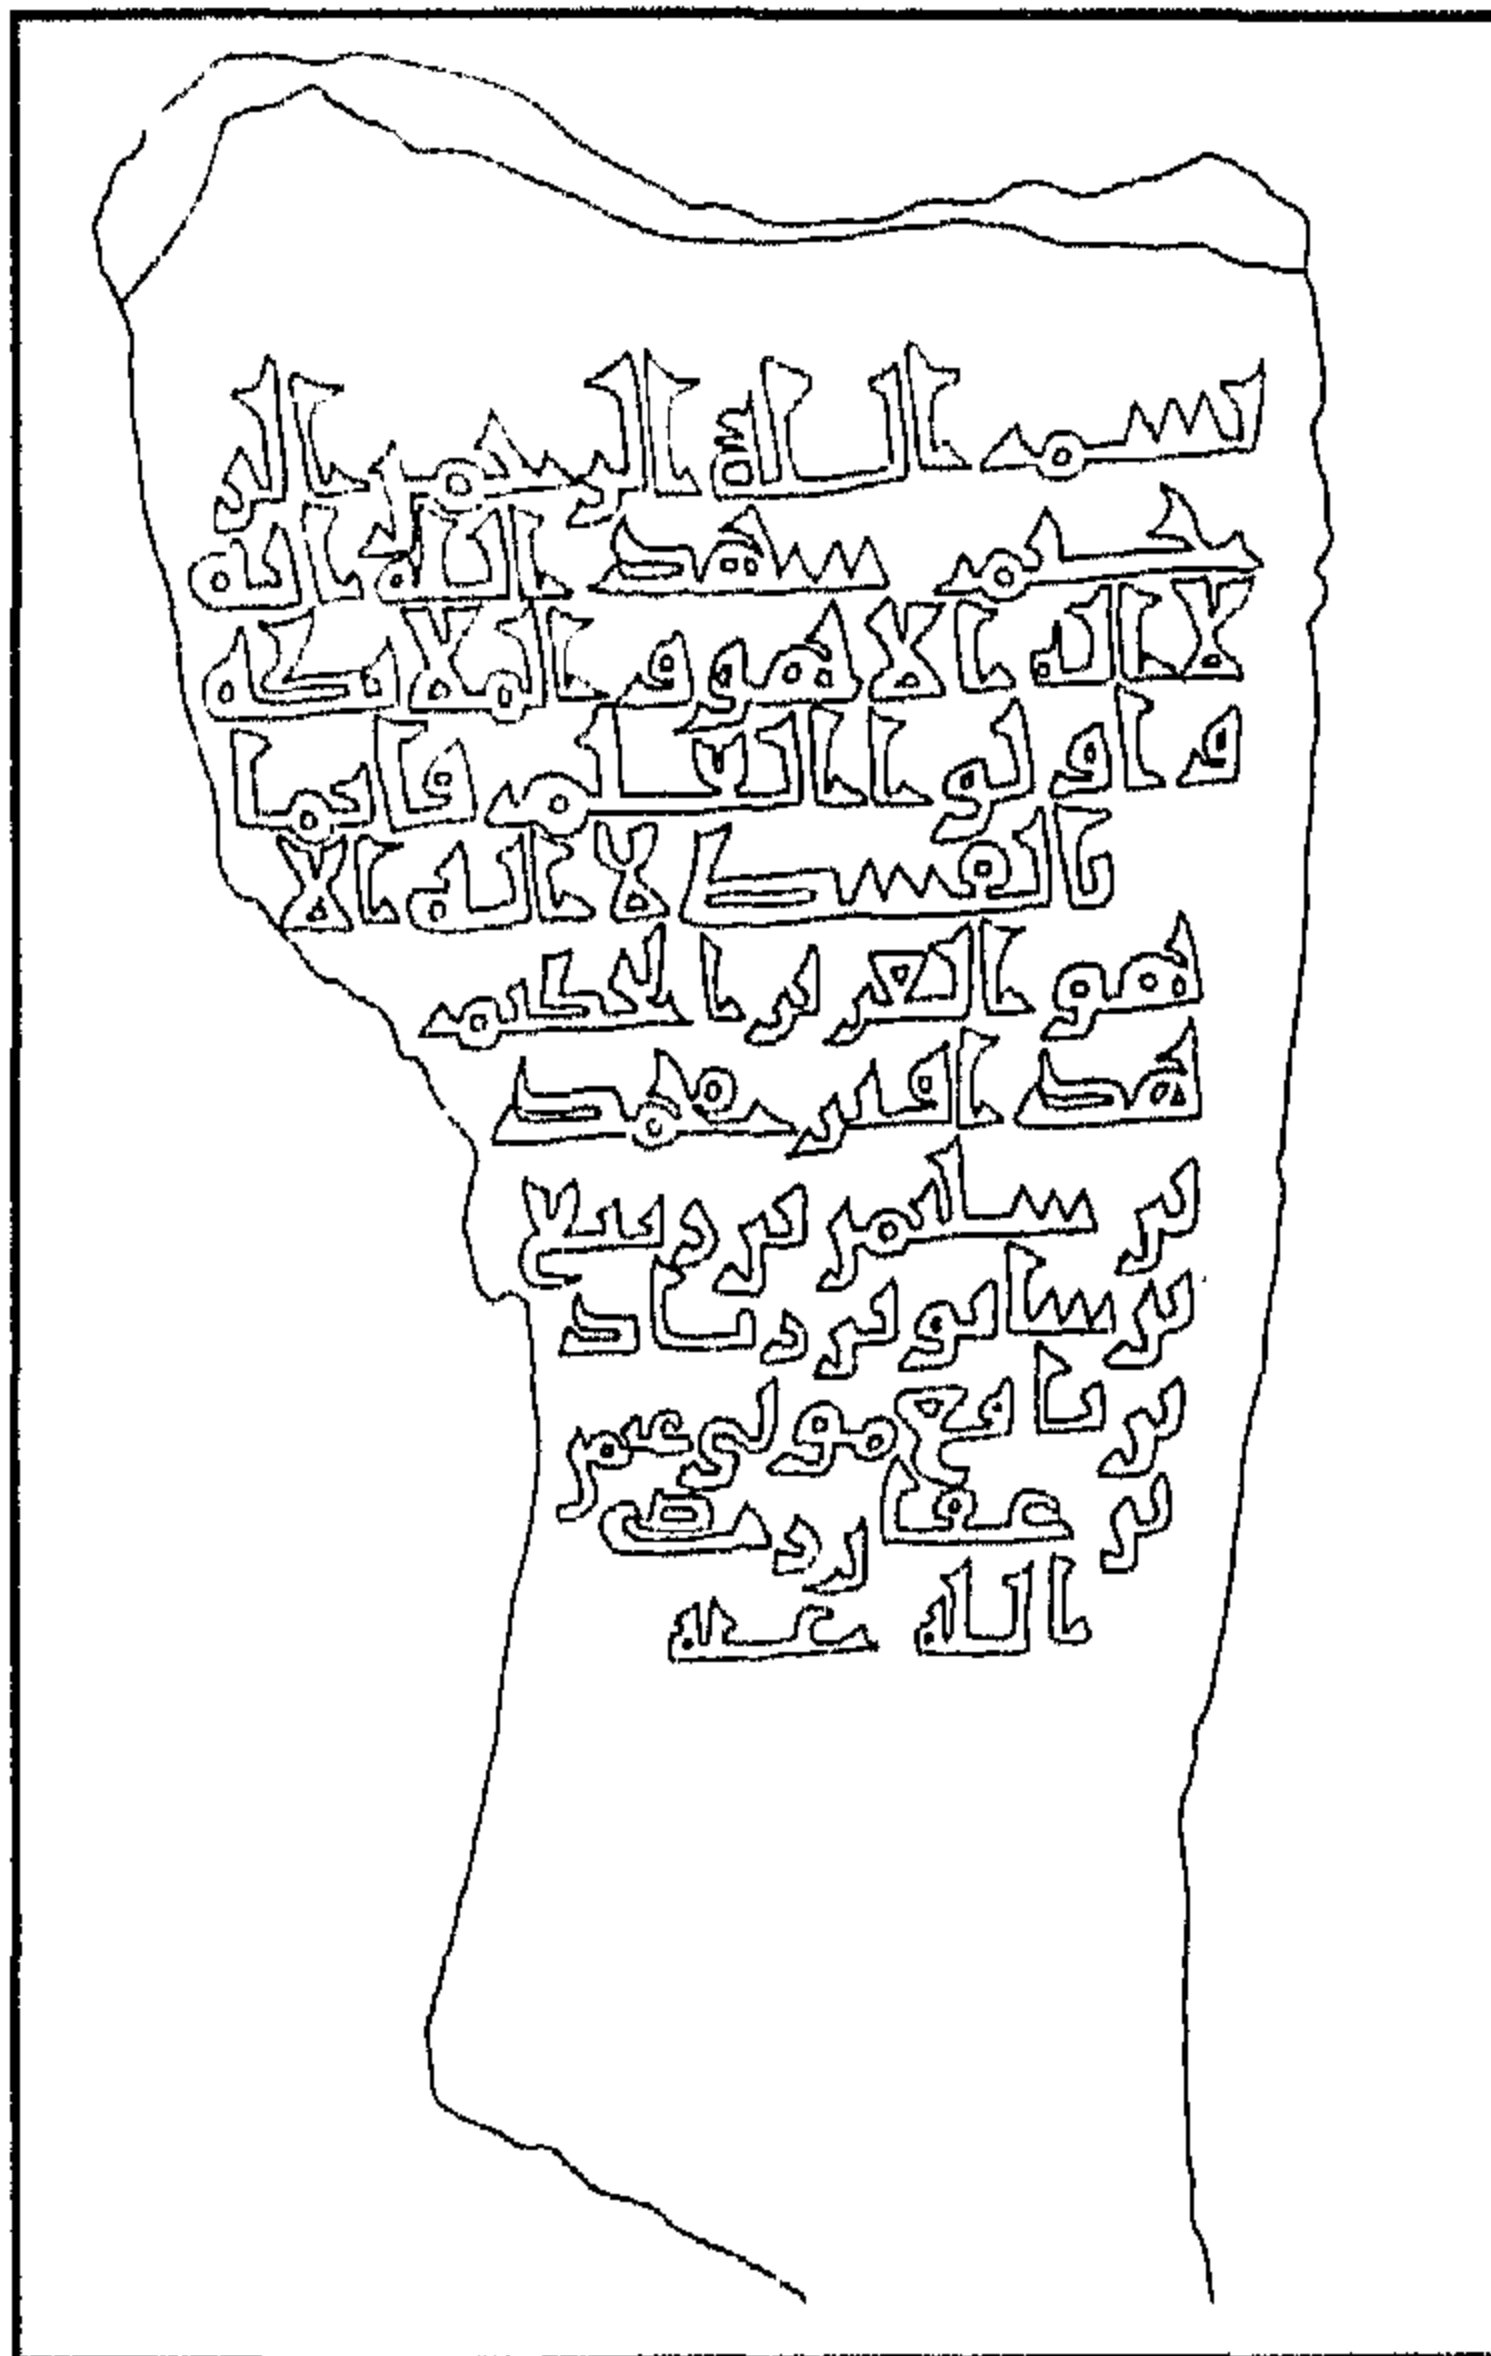 بسم الله الرحمن الر
حيم شهد الله انه
لا اله الا هو و الملائكة
و اولوا العلم قايما
بالقسط لا اله الا
هو العزيز الحكيم
هذا قبر محمد
بن سليمن بن ربيع
بن سابق بن زياد
بن نافع مولى عثمن
بن عفان رضي
الله عنه